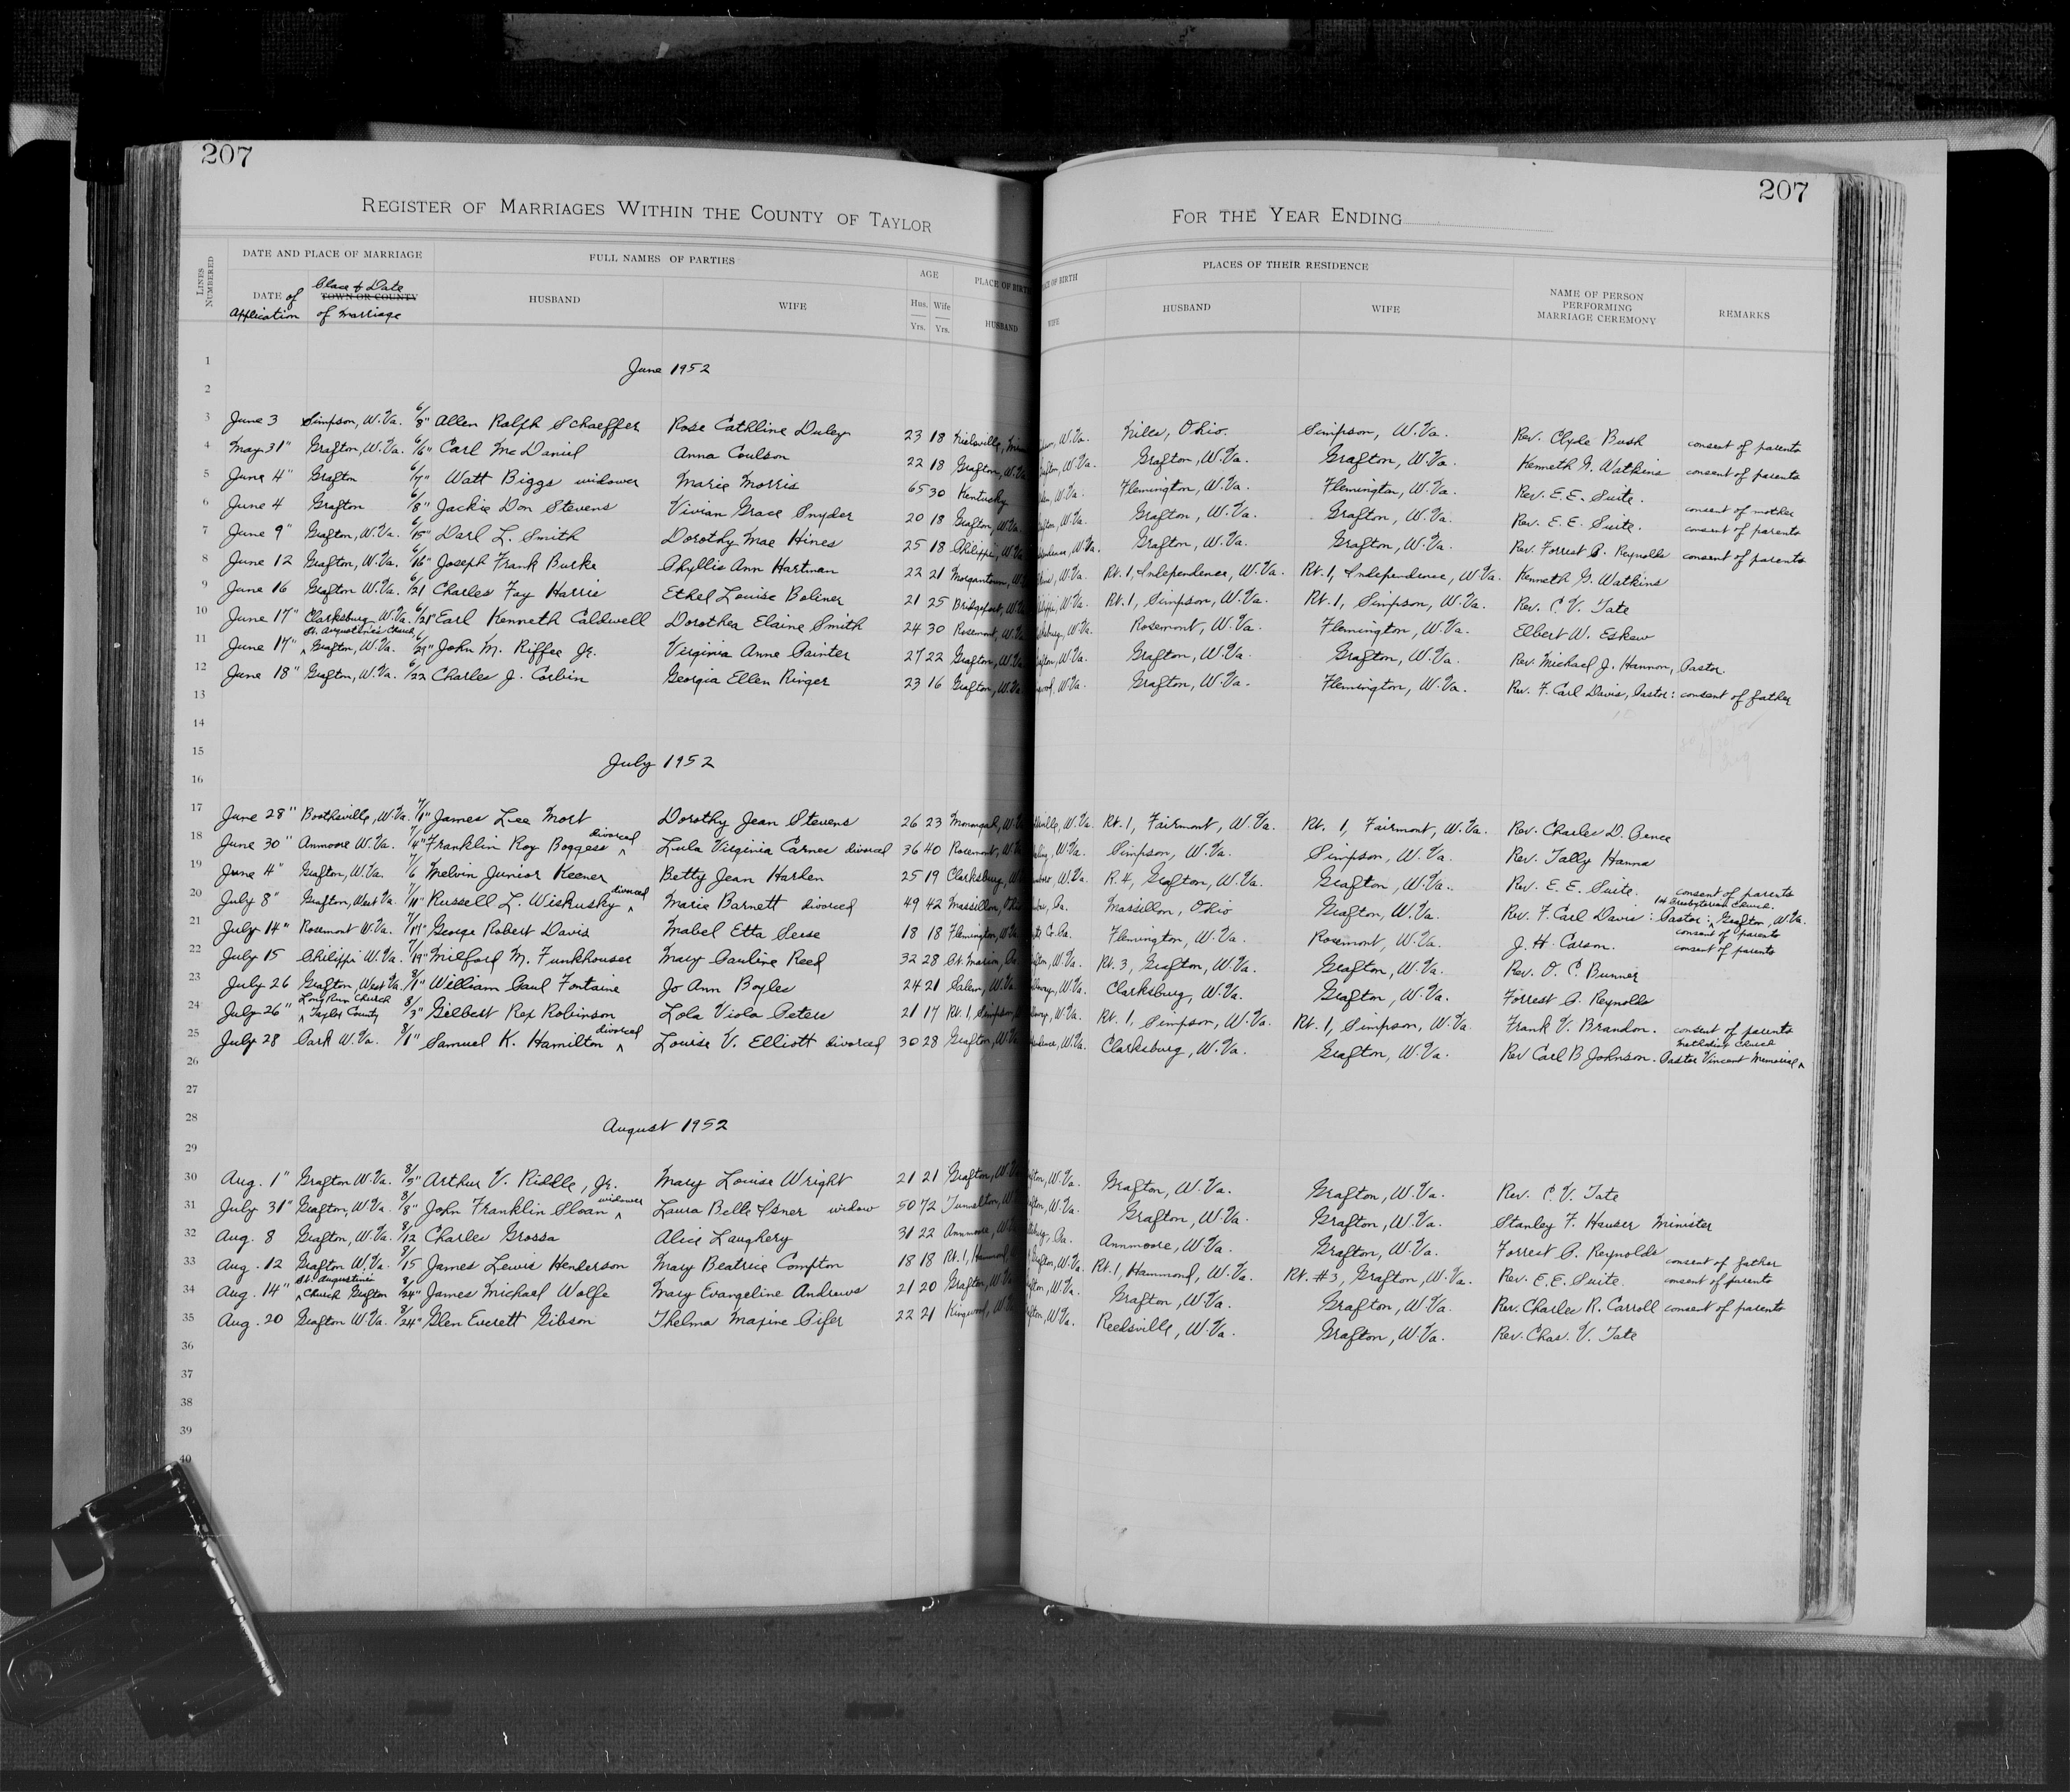 207
207
REGISTER OF MARRIAGES WITHIN THE COUNTY OF TAYLOR
FOR THE YEAR ENDING
LINES NUMBERED
DATE AND PLACE OF MARRIAGE
FULL NAMES OF PARTIES
AGE
PLACE OF BIRTH
PLACES OF THEIR RESIDENCE
NAME OF PERSON PERFORMING MARRIAGE CEREMONY
REMARKS
DATE of Application
Place & Date TOWN OR COUNTY of Marriage
HUSBAND
WIFE
Hus. Wife
Yrs. Yrs.
HUSBAND
WIFE
HUSBAND
WIFE
1
June 1952
2
3 June 3 Simpson, W.Va. 6/8" Allen Ralph Schaeffer Rose Cathline Duley 23 18 W.Va. Niles, Ohio. Simpson, W.Va. Rev. Clyde Bush consent of parents
4 May 31" Grafton, W.Va. 6/6" Carl McDaniel Anna Coulson 22 18 Grafton, W.Va. Grafton, W.Va. Grafton, W.Va. Grafton, W.Va. Kenneth G. Watkins consent of parents
5 June 4" Grafton 6/7" Watt Biggs widower Marie Morris 65 30 Kentucky W.Va. Flemington, W.Va. Flemington, W.Va. Rev. E.E. Suite. consent of mother
6 June 4 Grafton 6/8" Jackie Don Stevens Vivian Grace Snyder 20 18 Grafton, W.Va. Grafton, W.Va. Grafton, W.Va. Grafton, W.Va. Rev. E.E. Suite. consent of parents
7 June 9" Grafton, W.Va. 6/15" Darl L. Smith Dorothy Mae Hines 25 18 Philippi, W.Va. W.Va. Grafton, W.Va. Grafton, W.Va. Rev. Forrest P. Reynolds consent of parents
8 June 12 Grafton, W.Va. 6/16" Joseph Frank Burke Phyllis Ann Hartman 22 21 Morgantown, W.Va. Rt. 1, Independence, W.Va. Rt. 1, Independence, W.Va. Kenneth G. Watkins
9 June 16 Grafton W.Va. 6/21 Charles Fay Harris Ethel Louise Boliner 21 25 Bridgeport, W.Va. W.Va. Rt. 1, Simpson, W.Va. Rt. 1, Simpson, W.Va. Rev. C.V. Tate
10 June 17" Clarksburg W.Va. 6/21" Earl Kenneth Caldwell Dorothea Elaine Smith 24 30 Rosemont, W.Va. W.Va. Rosemont, W.Va. Flemington, W.Va. Elbert W. Eskew
St. Augustine's Church
11 June 17" Grafton, W.Va. 6/27" John M. Riffee Jr. Virginia Anne Painter 27 22 Grafton, W.Va. Grafton, W.Va. Grafton, W.Va. Grafton, W.Va. Rev. Michael J. Hannon, Pastor
12 June 18" Grafton, W.Va. 6/22 Charles J. Corbin Georgia Ellen Ringer 23 16 Grafton, W.Va. W.Va. Grafton, W.Va. Flemington, W.Va. Rev. F. Carl Davis, Pastor: consent of father
13
14
15
July 1952
16
17 June 28" Boothsville, W.Va. 7/1" James Lee Mort Dorothy Jean Stevens 26 23 Monongah, W.Va. Rt. 1, Fairmont, W.Va. Rt. 1, Fairmont, W.Va. Rev. Charles D. Pence
18 June 30" Anmoore W.Va. 7/4" Franklin Roy Boggess divorced Lula Virginia Carnes divorced 36 40 Rosemont, W.Va. W.Va. Simpson, W.Va. Simpson, W.Va. Rev. Tally Hanna
19 June 4" Grafton, W.Va. 7/6 Melvin Junior Keener Betty Jean Harlen 25 19 Clarksburg, W.Va. R. 4, Grafton, W.Va. Grafton, W.Va. Rev. E.E. Suite. consent of parents
20 July 8" Grafton, West Va. 7/10" Russell L. Wiskusky divorced Marie Barnett divorced 49 42 Massillon, Ohio Pa. Massillon, Ohio Grafton, W.Va. Rev. F. Carl Davis: Pastor: 1st Presbyterian Church. Grafton, W.Va.
21 July 14" Rosemont W.Va. 7/17" George Robert Davis Mabel Etta Sesse 18 18 Flemington, W.Va. Co. Pa. Flemington, W.Va. Rosemont, W.Va. J.H. Carson. consent of parents
22 July 15 Philippi W.Va. 7/19" Milford M. Funkhouser Mary Pauline Reed 32 28 Pt. Marion, Pa. Grafton, W.Va. Rt. 3, Grafton, W.Va. Grafton, W.Va. Rev. O.C. Bunner consent of parents
23 July 26 Grafton, West Va. 8/1" William Paul Fontaine Jo Ann Boyles 24 21 Salem, W.Va. W.Va. Clarksburg, W.Va. Grafton, W.Va. Forrest P. Reynolds
Long Run Church
24 July 26" Taylor County 8/3" Gilbert Rex Robinson Lola Viola Peters 21 17 Rt. 1, Simpson, W.Va. Rt. 1, Simpson, W.Va. Rt. 1, Simpson, W.Va. Frank V. Brandon. consent of parents
25 July 28 Park W.Va. 8/1" Samuel K. Hamilton divorced Louise V. Elliott divorced 30 28 Grafton, W.Va. W.Va. Clarksburg, W.Va. Grafton, W.Va. Rev Carl B Johnson. Pastor Vincent Memorial Methodist Church
26
27
28
August 1952
29
30 Aug. 1" Grafton W.Va. 8/2" Arthur V. Riddle, Jr. Mary Louise Wright 21 21 Grafton, W.Va. Grafton, W.Va. Grafton, W.Va. Grafton, W.Va. Rev. C.V. Tate
31 July 31" Grafton, W.Va. 8/8" John Franklin Sloan widower Laura Belle Isner widow 50 72 Tunnelton, W.Va. Grafton, W.Va. Grafton, W.Va. Grafton, W.Va. Stanley F. Hauser Minister
32 Aug. 8 Grafton, W.Va. 8/12 Charles Grossa Alice Laughery 31 22 Anmoore, W.Va. Pa. Annmoore, W.Va. Grafton, W.Va. Forrest P. Reynolds
33 Aug. 12 Grafton W.Va. 8/15 James Lewis Henderson Mary Beatrice Compton 18 18 Rt. 1, Hammond Grafton, W.Va. Rt. 1, Hammond, W.Va. Rt. #3, Grafton, W.Va. Rev. E.E. Suite. consent of father consent of parents
St. Augustine
34 Aug. 14" Church Grafton 8/24" James Michael Wolfe Mary Evangeline Andrews 21 20 Grafton, W.Va. Grafton, W.Va. Grafton, W.Va. Grafton, W.Va. Rev. Charles R. Carroll consent of parents
35 Aug. 20 Grafton W.Va. 8/24" Glen Everett Gibson Thelma Maxine Pifer 22 21 Kingwood, W.Va. Grafton, W.Va. Reedsville, W.Va. Grafton, W.Va. Rev. Chas. V. Tate
36
37
38
39
40